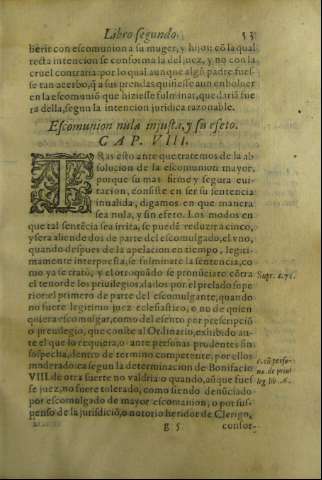 Libro segundo. 53
berir con escomunion a su muger, y hijos: cõ la qual
recta intencion se conforma la del juez, y no con la
cruel contraria: por lo qual aunque algũ padre fues-
se tan acerbo, q̃ a sus prendas quisiesse aun enboluer
en la escomunió que hiziesse fulminar, que daria fue
ra della, segun la intencion juridica razonable.
Escomunion nula injusta, y su efeto.
CAP. VIII.
TRas esto ante que tratemos de la ab
solucion de la escomunion mayor,
porque su mas firme y segura eui-
tacion, consiste en ser su sentencia
inualida, digamos en que manera
sea nula, y sin efeto. Los modos en
que tal sentẽcia sea irrita, se puedẽ reduzir a cinco,
y sera aliende dos de parte del escomulgado, el vno,
quando despues de la apelacion en tiempo, legiti-
mamente interpuesta, se fulminare la sentencia, co
mo ya se trató, y el otro quãdo se pronũciare cõtra
el tenor de los priuilegios, dados por el prelado supe
rior: el primero de parte del escomulgante, quando
no fuere legitimo juez eclesiastico, o no de quien
quiera escomulgar, como del esento por prescripció
o preuilegio, que conste al Ordinario, exhibido an-
te el que lo requiera, o ante personas prudentes sin
sospecha, dentro de termino competente, por ellos
moderado: ca segun la determinacion de Bonifacio
VIII. de otra suerte no valdria: o quando, aũque fues
se juez, no fuere tolerado, como siendo denunciado
por escomulgado de mayor escomunion, o por sus-
penso de la jurisdició, o notorio heridor de Clerigo,
g 5 confor-
Supr. c. 71.